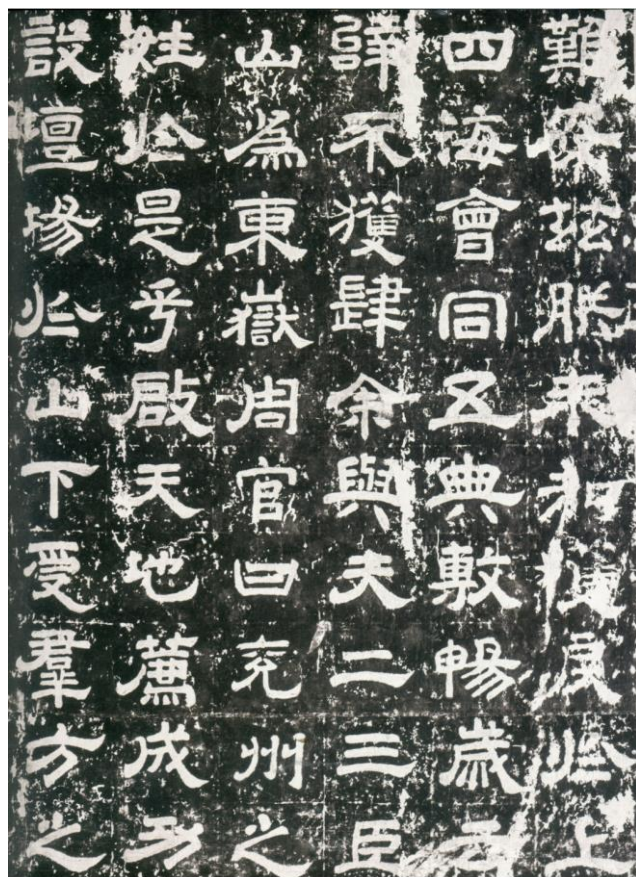 難安茲朕未知獲戾於上
四海會同五典敷暢歲云
辭不獲肆余與夫二三臣
山為東嶽周官曰兗州之
姓於是乎啟天地薦成功
設壇場於山下受羣方之